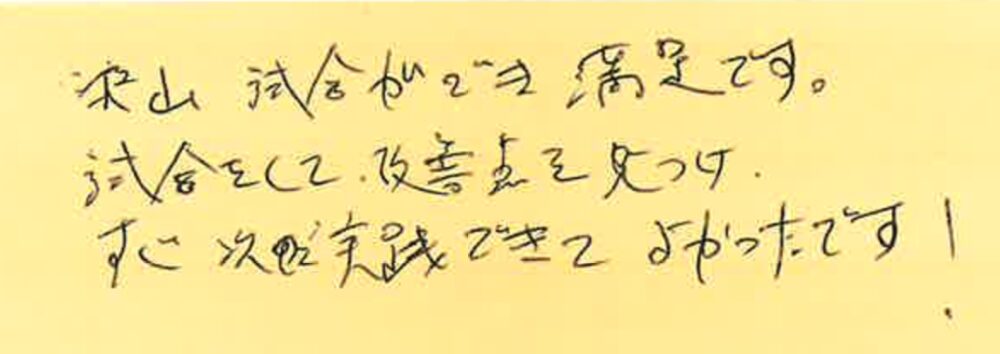 沢山 試合ができ 満足です。
試合をして、改善点を見つけ、
すぐ 次に実践できて よかったです!